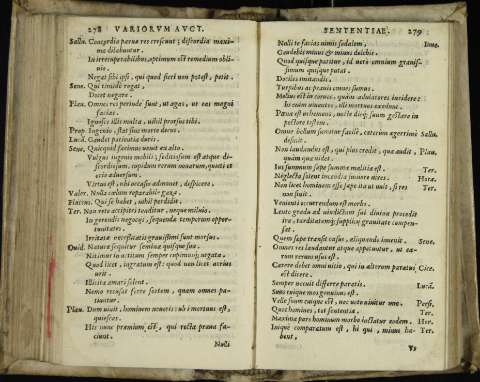 278 VARIORUM AUCT.
Sallu. Concordia parua res crescunt; discordia maxi-
ma dilabuntur.
In irrecuperabilibus, optimum est remedium obli-
uio.
Negat sibi ipsi, qui quod fieri non potest, petit.
Sene. Qui timide rogat,
Docet negare.
Plau. Omnes res perinde sunt, ut agas, ut eas magni
facias.
Ignosce aliis multa, nihil
Prop. Ingenio, stat sine morte decus.
Luca. Gaudet patientia duris.
Sene. Quicquid facimus venit ex alto.
Vulgus ingenio mobili, seditiosum est atque di-
scordiosum, cupidum rerum nouarum, quieti et
otio aduersum.
Virtus est, ubi occasio admonet, dispicere.
Valer. Nulla calum reparabile gaza.
Qui se habet, nihil perdidit.
Ter. Non rete accipitri tenditur, neque miluio.
In gerendis negocijs, sequenda temporum oppor-
tunitates.
Irritatæ necessitatis grauissimi sunt morsus.
Ouid. Naturæ sequitur semina quisque suæ.
Nitimur in uetitum semper cupimusq; negata.
Quod licet, ingratum est: quod non licet acrius
urit.
Illicita amari solent.
Nemo recusat ferre sortem, quam omnes pa-
tiuntur.
Plau. Dum uiuit, hominem noueris: ubi mortuus est,
quiescas.
His nunc præmium est, qui recta praua fa-
ciunt.
Nuli
SENTENTIAE. 279
Nulli te facias nimis sodalem, Iuue.
Gaudebis minus & minus dolebis.
Quod quisque patitur, id uero omnium grauis-
simum quisque putat.
Dociles imitandis.
Turpibus ac prauis omnes sumus.
Melius est in coruos, quàm adulatores incidere:
hi enim uiuentes, illi mortuos exedunt.
Pœna est uehemens, nocte dieq; suum gestare in
pectore testem.
Omne bellum sumitur facile, ceterùm ægerrimè Sallu.
desinit.
Non laudandus est, qui plus credit, quæ audit, Plau.
quam quæ uidet.
Ius summum sæpe summa malitia est. Ter.
Neglecta solent incendia sumere uires. Hora.
Non licet hominem esse sæpe ita ut uult, si res Ter.
non sinit.
Venienti occurrendum est morbo.
Lento gradu ad uindictam sui diuina procedit
ira, tarditatemq; supplicij grauitate compen-
sat.
Quem sæpe transit casus, aliquando inuenit. Sene.
Omnes res laudantur atque appetuntur, ut ea-
rum rerum usus est.
Carere debet omni uitio, qui in alterum paratus Cice.
est dicere.
Semper nocuit differre paratis. Luca.
Suus cuique mos genuinus est.
Velle suum cuique est, nec uoto uiuitur uno. Pers.
Quot homines, tot sententiæ. Ter.
Maxima pars hominum morbo iactatur eodem. Hor.
Iniquè comparatum est, hi qui, minus ha- Ter.
bent,